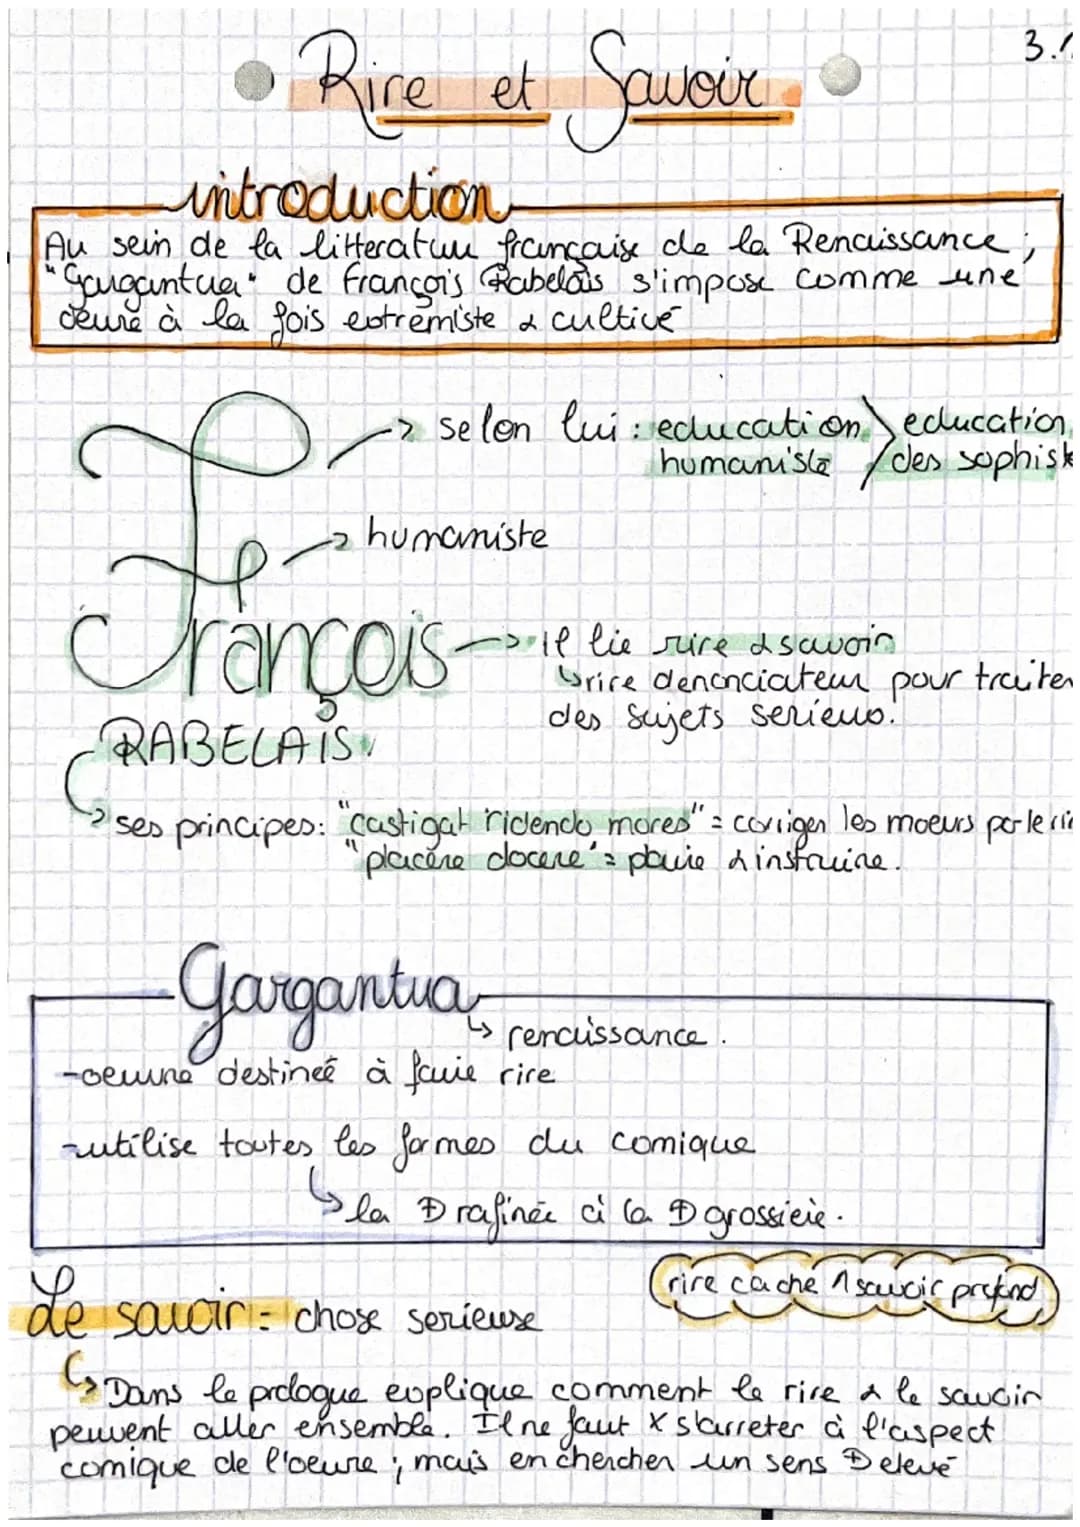 3.
Rire et Savoir
introduction
Au sein de la litterature française de la Renaissance ;
"Gargantua" de François Rabelais s'impose comme une
oeuvre à la fois extremiste & cultivé
-> selon lui : education > education
humaniste des sophist
-> humaniste
François -> il lie rire & savoir
↳ rire denonciateur pour traiter
des sujets serieux.
RABELAIS
-> ses principes: "castigat ridendo mores" = corriger les moeurs par le rir
"placere docere" = plaire & instruire.
Gargantua
↳ renaissance.
-oeuvre destineé à faire rire
-utilise toutes les formes du comique
↳ la Ð rafinée à la Ð grossière.
rire cache 1 savoir profond
Le savoir = chose serieuse
↳ Dans le prologue explique comment le rire & le savoir
peuvent aller ensemble. Il ne faut x s'arreter à l'aspect
comique de l'oeuvre ; mais en chercher un sens Ð elevé